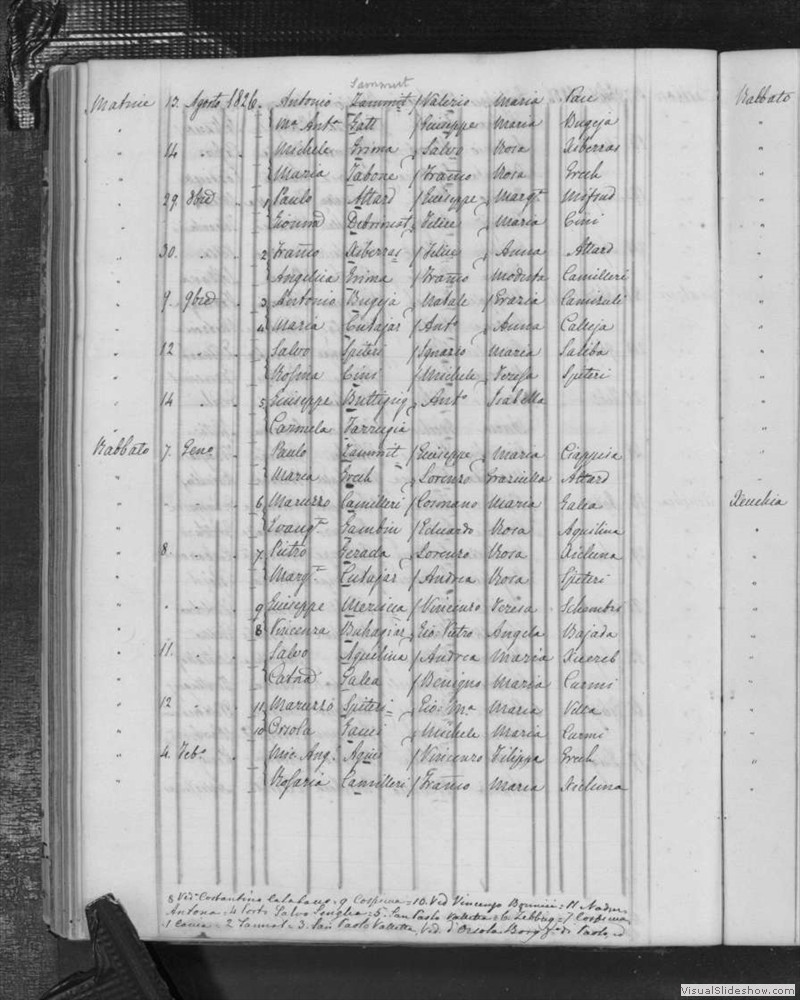 Sammut
Matrice 13. Agosto 1826. Antonio Zammit / Valerio Maria Pace Rabbato
Ma. Anta. Gatt / Giuseppe Maria Bugeja
14 Michele Grima / Salvo Rosa Xiberras
Maria Tabone / Franco Rosa Grech
29 8bre 1 Paulo Attard / Giuseppe Margta. Mifsud
Debrincat / Felice Maria Cini
30. 2 Franco Xiberras / Felice Anna Attard
Angelica Grima / Franco Modesta Camilleri
9. 9bre 3 Antonio Bugeja / Natale / Grazia
4 Maria Cutajar / Anto. Anna Calleja
12 Salvo Spiteri / Ignazio Maria Saliba
Rosina Cini / Michele Teresa Spiteri
14 5 Giuseppe Buttigieg Anto. Isabella
Carmela Farrugia
Rabbato 7. Geno. Paulo Zammit / Giuseppe Maria
Maria Grech / Lorenzo Graziulla Attard
6 Maruzzo Camilleri / Cosmano Maria Galea Xeuchia
Evangta. Gambin / Eduardo Rosa Aquilina
8. 7 Pietro Zerada Lorenzo Rosa Xicluna
Margta. Cutajar / Andrea Rosa Spiteri
9 Giuseppe / Vincenzo Teresa Schembri
8 Vincenza Buhagiar Gio: Pietro Angela Bajada
11. Salvo Aquilina / Andrea Maria Xuereb
Catnd. Galea / Benigno Maria Curmi
12 11 Maruzzo Spiteri Gio: Ma. Maria Vella
10 Orsola Gauci / Michele Maria Curmi
4. Febo. Mic. Ang. Agius / Vincenzo Filippa Grech
Rosaria Camilleri / Franco Maria Xicluna
8 Vedo. Costantina Catabano. 9 Cospicua = 10. Ved Vincenzo = 11 Nadur.
Antona = 4 Porto Salvo Senglea = 5. San Paolo Valletta = 6 Zebbug = 7 Cospicua
= 2 Sannat = 3. San Paolo Valletta, Ved. d'Orsola Borg fa. di Paolo,
VisualSlideshow.com